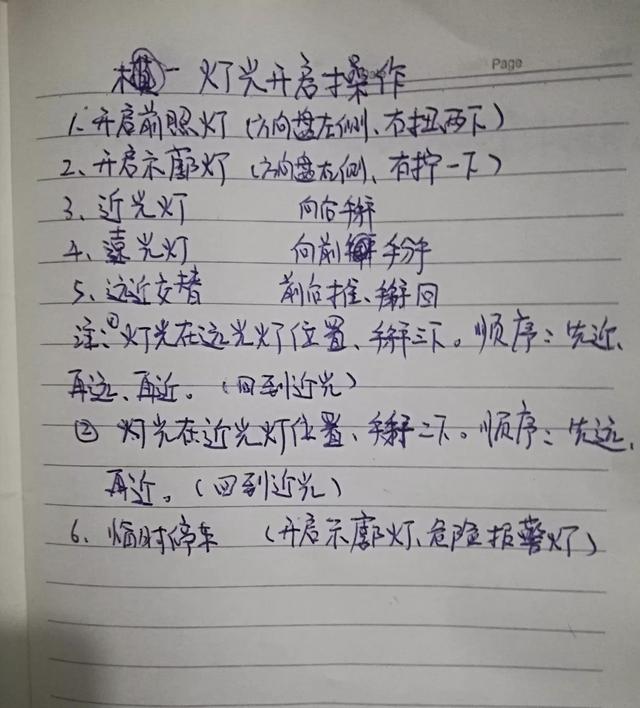 Page
模一 灯光开启操作
1、开启前照灯(方向盘左侧、右扭两下)
2、开启示廓灯(方向盘左侧、右拧一下)
3、近光灯 向后掰
4、远光灯 向前掰
5、远近交替 前后推、掰回
注:①灯光在远光灯位置、掰三下。顺序:先近、
再远、再近。(回到近光)
② 灯光在近光灯位置、掰二下。顺序:先远、
再近。(回到近光)
6、临时停车 (开启示廓灯、危险报警灯)